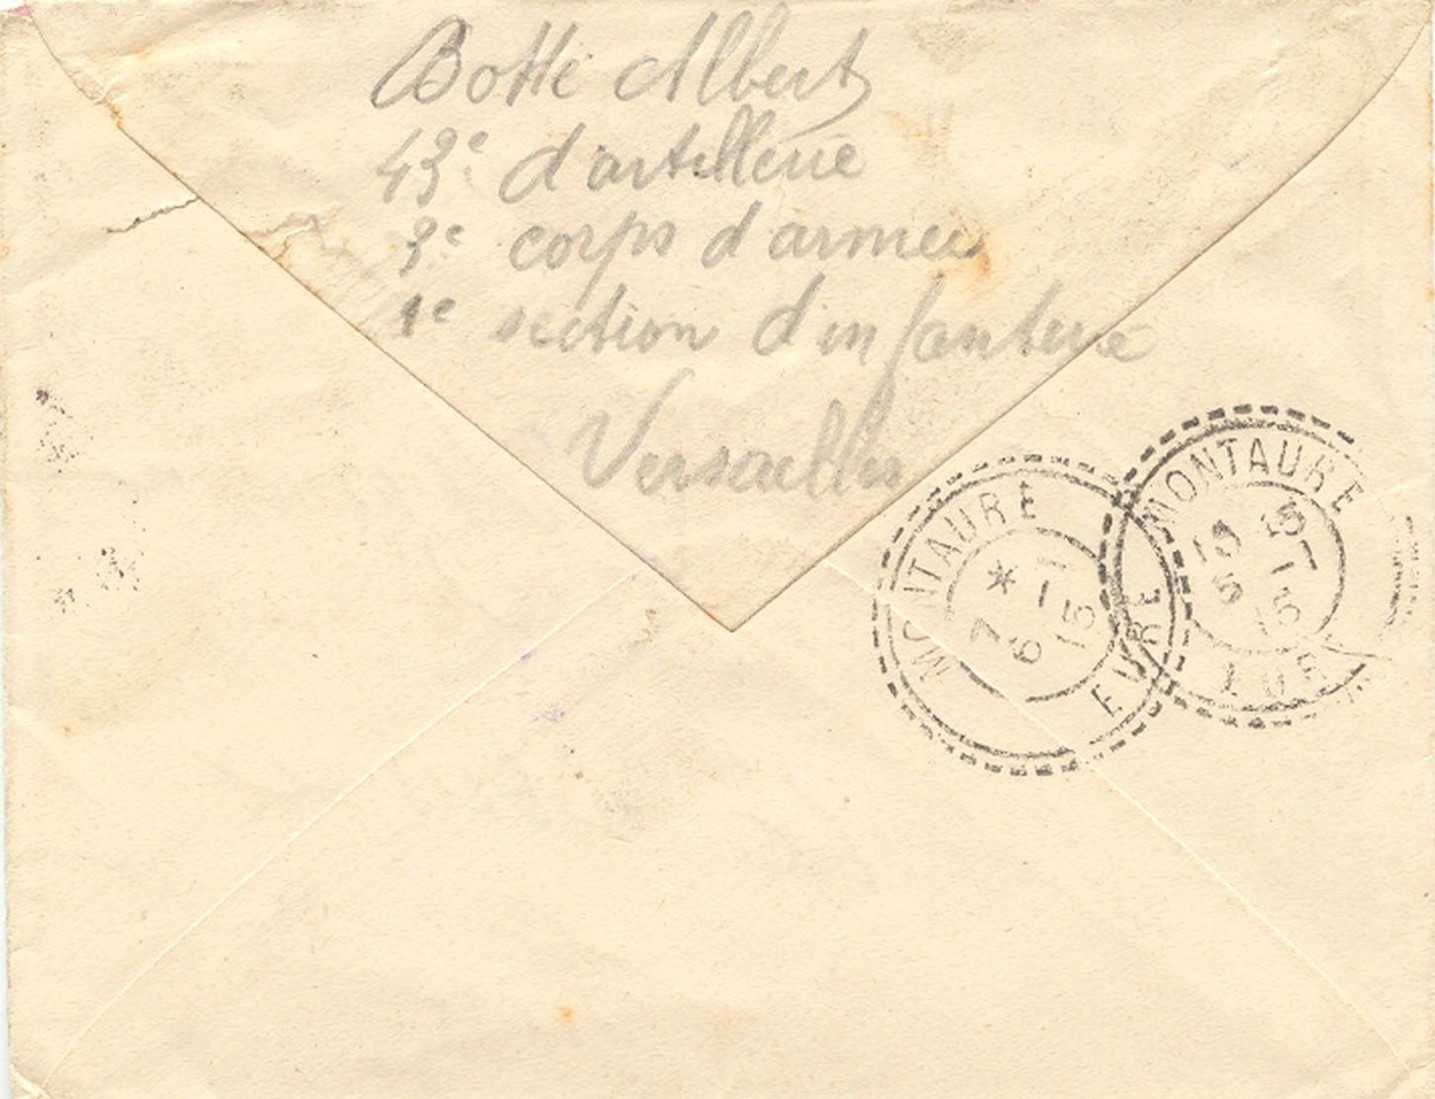 Botté Albert
43e d'artillerie
3e corps d'armée
1e section d'infanterie
Versailles
MONTAURE
* 7 6 -1 15
EURE
MONTAURE
5 -1 15
EUR